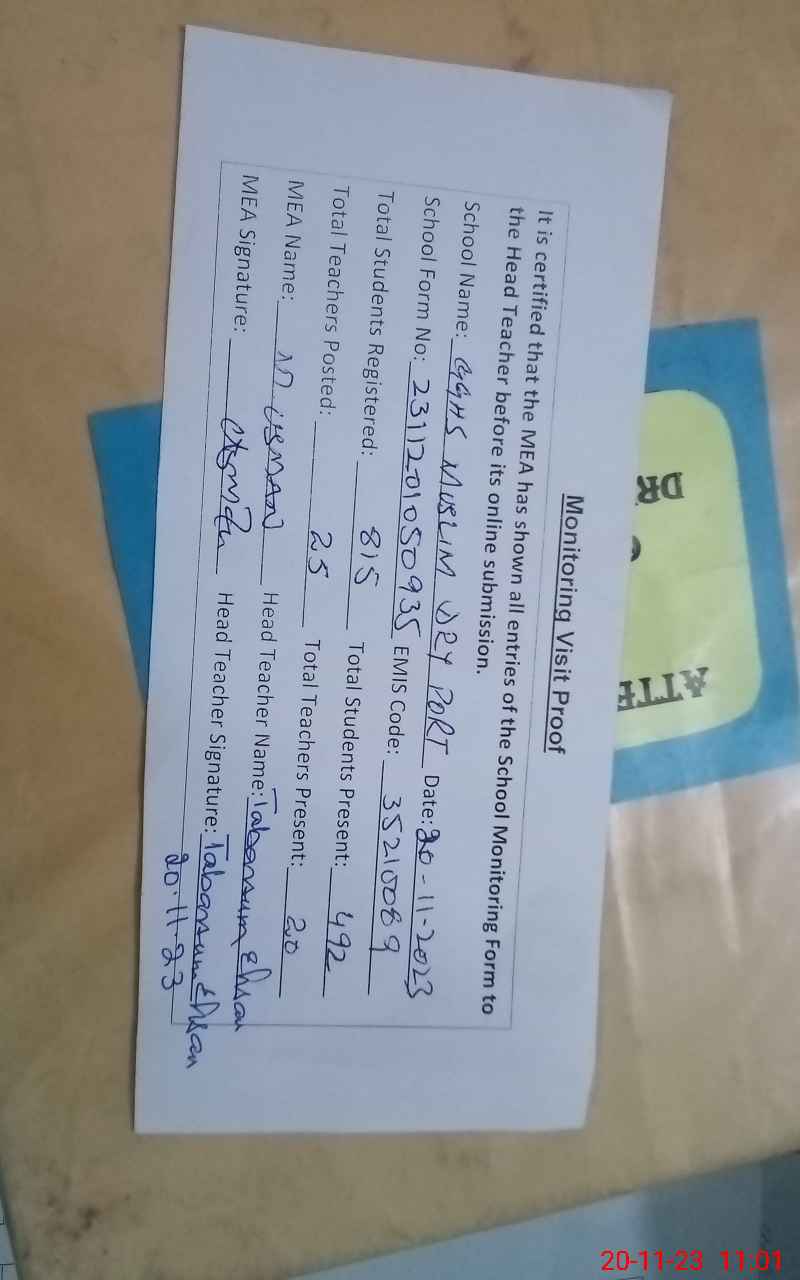 Monitoring Visit Proof
It is certified that the MEA has shown all entries of the School Monitoring Form to
the Head Teacher before its online submission.
School Name: GGHS MUSLIM DRY PORT Date: 20-11-2023
School Form No: 2311201050935 EMIS Code: 35210089
Total Students Registered: 815 Total Students Present: 492
Total Teachers Posted: 25 Total Teachers Present: 20
MEA Name: M USMAN Head Teacher Name: Tabassum Ehsan
MEA Signature: Head Teacher Signature: Tabassum Ehsan
20-11-23
DR
ATTE
20-11-23 11:01